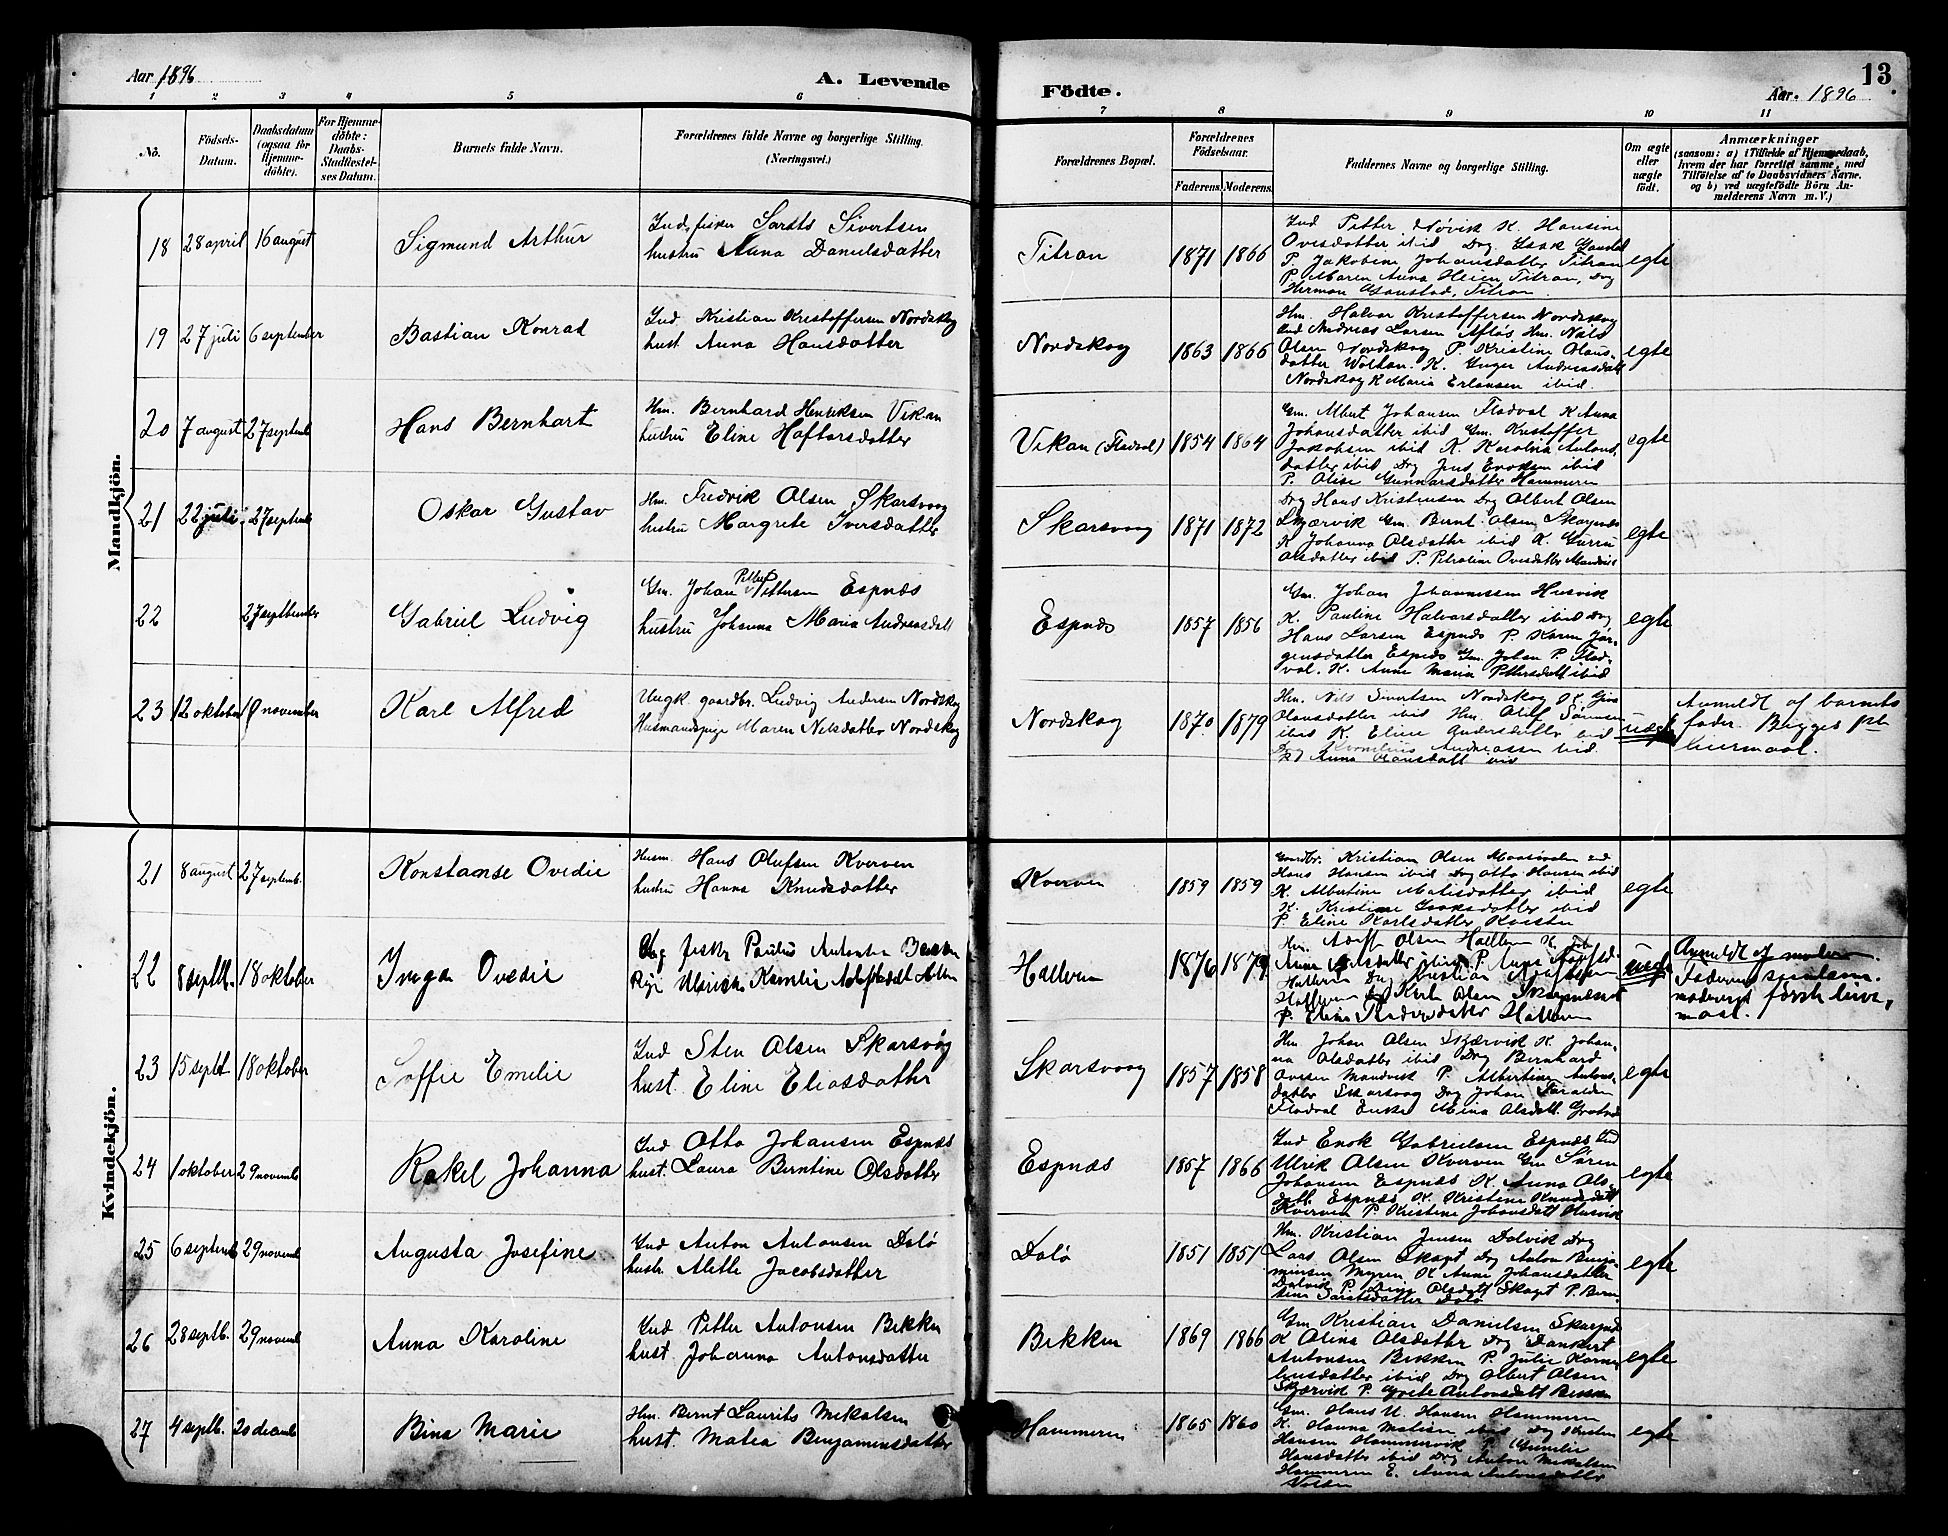 Aar 1896
A. Levende
Födte.
13
Aar. 1896
1 2 3 4 5 6 7 8 9 10 11
No.
Födsels-
Datum.
Daabsdatum
(ogsaa for
Hjemme-
döbte).
For Hjemme-
döbte:
Daabs-
Stadfæstel-
ses Datum.
Barnets fulde Navn.
Forældrenes fulde Navne og borgerlige Stilling.
(Næringsvei.)
Forældrenes Bopæl.
Forældrenes
Födselsaar.
Faderens. Moderens.
Faddernes Navne og borgerlige Stilling.
Om ægte
eller
uægte
födt.
Anmærkninger
(saasom: a) i Tilfælde af Hjemmedaab,
hvem der har forrettet samme, med
Tilföielse af to Daabsvidners Navne.
og b) ved uægtefödte Börn An-
melderens Navn m.V.)
Mandkjön.
18 28 april 16 august Sigmund Arthur
Ind, fisker Sivertsen
hustru Anna Danielsdatter
Titran 1871 1866
Ind Petter K. Hansine
Ovesdatter ibid Drg. Isak
P. Jakobine Johansdatter Titran
P. Maren Anna Heien Titran, Drg
Herman Titran
egte
19 27 juli 6 september Bastian Konrad
Ind Kristian Kristoffersen Nordskog
hust Anna Hansdatter
Nordskog 1863 1866
Hm. Halvor Kristoffersen Nordskog
Ind Andreas Larsen Hm. Nils
Olsen Nordskog P. Kristine Olaus-
datter K. Inger Andreasdatt
Nordskog K Maria Erlansen ibid
egte
20 7 august 27 septemb Hans Bernhart
Hm. Bernhard Henriksen Vikan
hustru Eline Haftorsdatter
Vikan (Fladval) 1854 1864
Gm. Albert Johansen Fladval K Anna
Johansdatter ibid Gm. Kristoffer
Jakobsen ibid K. Karolina Antons-
datter ibid Drg Jens ibid
P. Olise Gunnarsdatter Hammeren
egte
21 22 juli 27 septemb Oskar Gustav
Hm. Fredrik Olsen Skarsvog
hustru Margrete Iversdatter
Skarsvog 1871 1872
Drg Hans Kristensen Drg Albert Olsen
Skjærvik Gm. Bernt Olsen
K Johanna Olsdatter ibid K. Gurru
Olsdatter ibid P. Petroline Ovesdatter Mandvik
egte
22 27 septbember Gabriel Ludvig
Petter
Gm. Johan Pettersen Espnæs
hustru Johanna Maria Andreasdatt
Espnæs 1857 1856
Gm. Johan Johannessen Husvik
K. Pauline Halvorsdatter ibid Drg
Hans Larsen Espnæs P. Karen Jør-
gensdatter Espnæs Gm. Johan P. Flad-
val. K. Anne Maria Pettersdatt ibid
egte
23 12 oktober november Karl Alfred
Ungk. gaardbr. Ludvig Andersen Nordskog
Husmandspige Maren Nilsdatter Nordskog
Nordskog 1870 1879
Hm. Nils Sivertsen Nordskog K.
Olausdatter ibid Hm. Oluf
ibid K. Eline Andersdatter ibid
Drg Kornelius Andreassen ibid
P. Anna Hansdatt ibid
uægte
Anmeldt af barnets
fader. Begges 1ste
leiermaal.
Kvindekjön.
21 8 august 27 septemb. Konstanse Ovedie
Husm. Hans Olufsen Kverven
hustru Hanna Knudsdatter
Kverven 1859 1859
Gaardbr. Kristian Olsen Maasøvalen Ind
Hans Hansen ibid Drg Otto Hansen ibid
K. Albertine Matisdatter ibid
K. Kristine Isaksdatter ibid
P. Eline Karlsdatter
egte
22 8 septb. 18 oktober Inga Ovedie
Ung fisker Paulus Antonsen
Pige Ulrikke Kamilie
Hallven 1876 1879
Hm. Adolf Olsen Hallven K.
Anne ibid P. Anne
Hallven Drg Kristian Adolfsen
Hallven Drg Karl Olsen
P. Eline Hallven
uegte
Anmeldt af moderen.
Faderens
moderens første leier-
maal.
23 15 septb 18 oktober Soffie Emilie
Ind Sten Olsen Skarsvog
hust. Eline Eliasdatter
Skarsvog 1857 1858
Hm Johan Olsen Skjærvik K. Johan-
na Olsdatter ibid Drg Bernhard
Ovesen Mandvik P. Albertine Antons-
datter Skarsvog Drg Johan
Fladval Enke Mina Olsdatt
egte
24 1 oktober 29 novemb Rakel Johanna
Ind Otto Johansen Espnæs
hust. Laura Berntine Olsdatter
Espnæs 1857 1866
Ind Enok Gabrielsen Espnæs Ind
Ulrik Olsen Kverven Gm Sören
Johansen Espnæs K. Anna Ols-
datt. Espnæs K. Kristine Knudsdatt
Kverven P. Kristine Johansdatt Husvik
egte
25 6 septemb 29 novemb Augusta Josefine
Ind Anton Antonsen Dolø
hustr. Alette Jacobsdatter
Dolø 1851 1851
Hm. Kristian Jensen Dalvik Drg
Lars Olsen Skagt Drg Anton Benja-
minsen Myren K Anne Johansdatter
Dalvik P. Olsdatt Skagt P. Bern-
tine Dolø
egte
26 28 septb. 29 novemb Anna Karoline
Ind Petter Antonsen Bekken
hust. Johanna Antonsdatter
Bekken 1869 1866
Gm Kristian Danielsen
K Olina Olsdatter Drg Dankert
Antonsen Bekken P. Julie Korne-
liusdatter ibid Drg Albert Olsen
Skjærvik P. Grete Antonsdatt Bekken
egte
27 4 septb. 20 decemb Bina Marie
Hm. Bernt Laurits Mikalsen
hust. Matea Benjaminsdatter
Hammeren 1865 1860
Gm. Hans U. Hansen Hammeren
K. Hanna Matisen ibid Drg
Hansen Hammervik P. Gunelie
Hansdatter ibid Drg Anton Mikalsen
Hammeren E. Anna Antonsdatter
egte